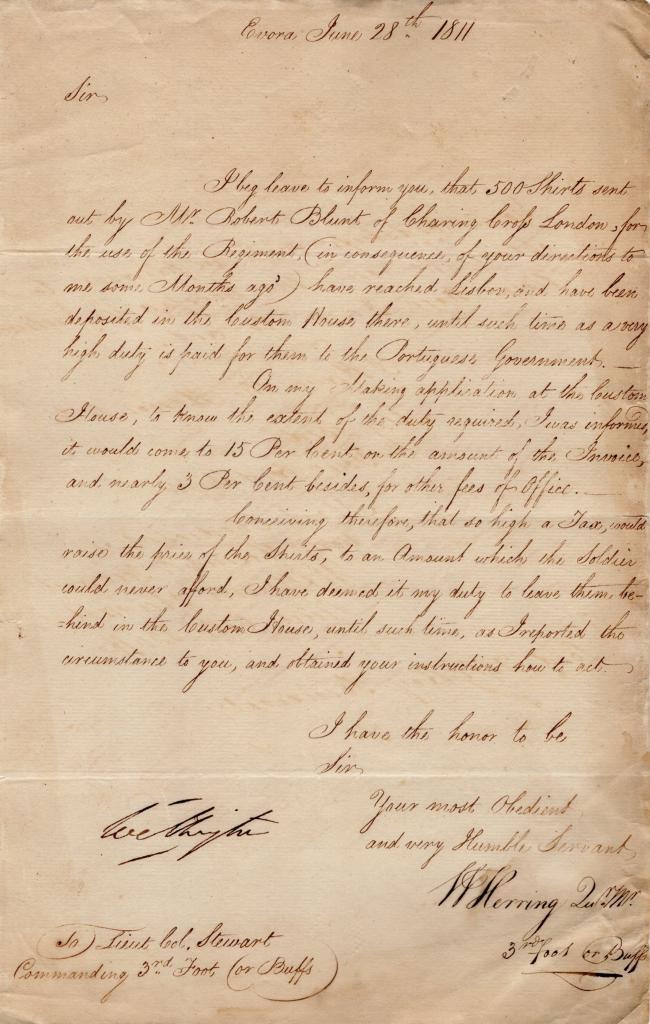 Evora June 28th. 1811
Sir
I beg leave to inform you, that 500 Shirts sent
out by Mr. Robert Blunt of Charing Cross London, for
the use of the Regiment, (in consequence, of your directions to
me some Months ago) have reached Lisbon, and have been
deposited in the Custom House there, until such time as a very
high duty is paid for them to the Portuguese Government. —
On my Making application at the Custom
House, to know the extent of the duty required, I was informed,
it would come to 15 Per Cent on the amount of the Invoice,
and nearly 3 Per Cent besides, for other fees of Office. —
Conceiving therefore, that so high a Tax, would
raise the price of the Shirts, to an Amount which the Soldier
could never afford, I have deemed it my duty to leave them be-
-hind in the Custom House, until such time, as I reported the
circumstance to you, and obtained your instructions how to act.
I have the honor to be
Sir
Your most Obedient
and very Humble Servant
W Herring Qur. Mr.
3rd Foot (or Buffs
To Lieut Col. Stewart
Commanding 3rd Foot (or Buffs)